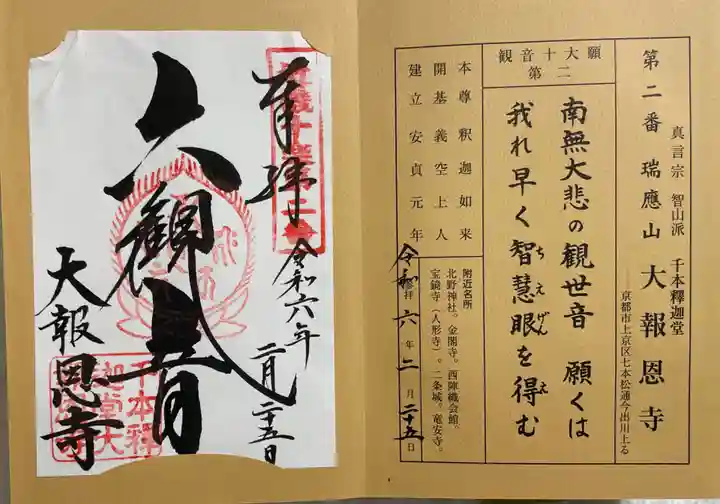 第二番 瑞應山 大報恩寺
真言宗 智山派 千本釋迦堂
京都市上京区七本松通今出川上る
観音十大願
第二
南無大悲の観世音 願くは
我れ早く智慧眼を得む
ちえげん え
本尊 釈迦如来
開基 義空上人
建立 安貞元年
附近名所
北野神社。金閣寺。西陣織会館。
宝鏡寺(人形寺)。二条城。竜安寺。
令和六年二月二十五日
参拝
奉拝
令和六年 二月二十五日
六観音
大報恩寺
千本釋
迦堂大
報恩寺